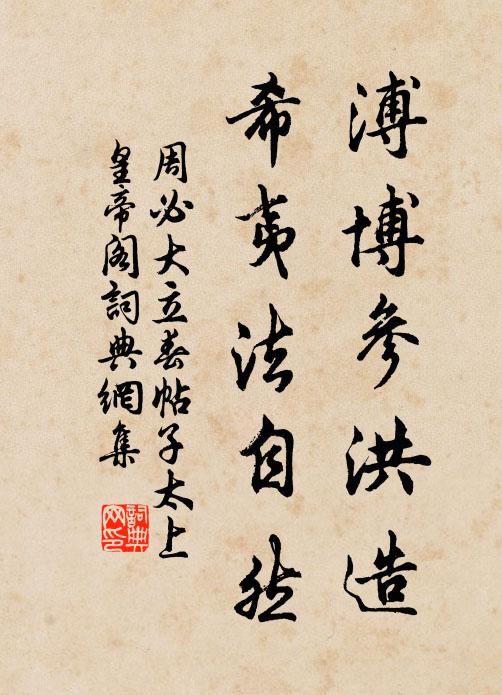 溥博參洪造
希夷法自然
周必大立春帖子太上
皇帝閣詞典網集
詞典
网印